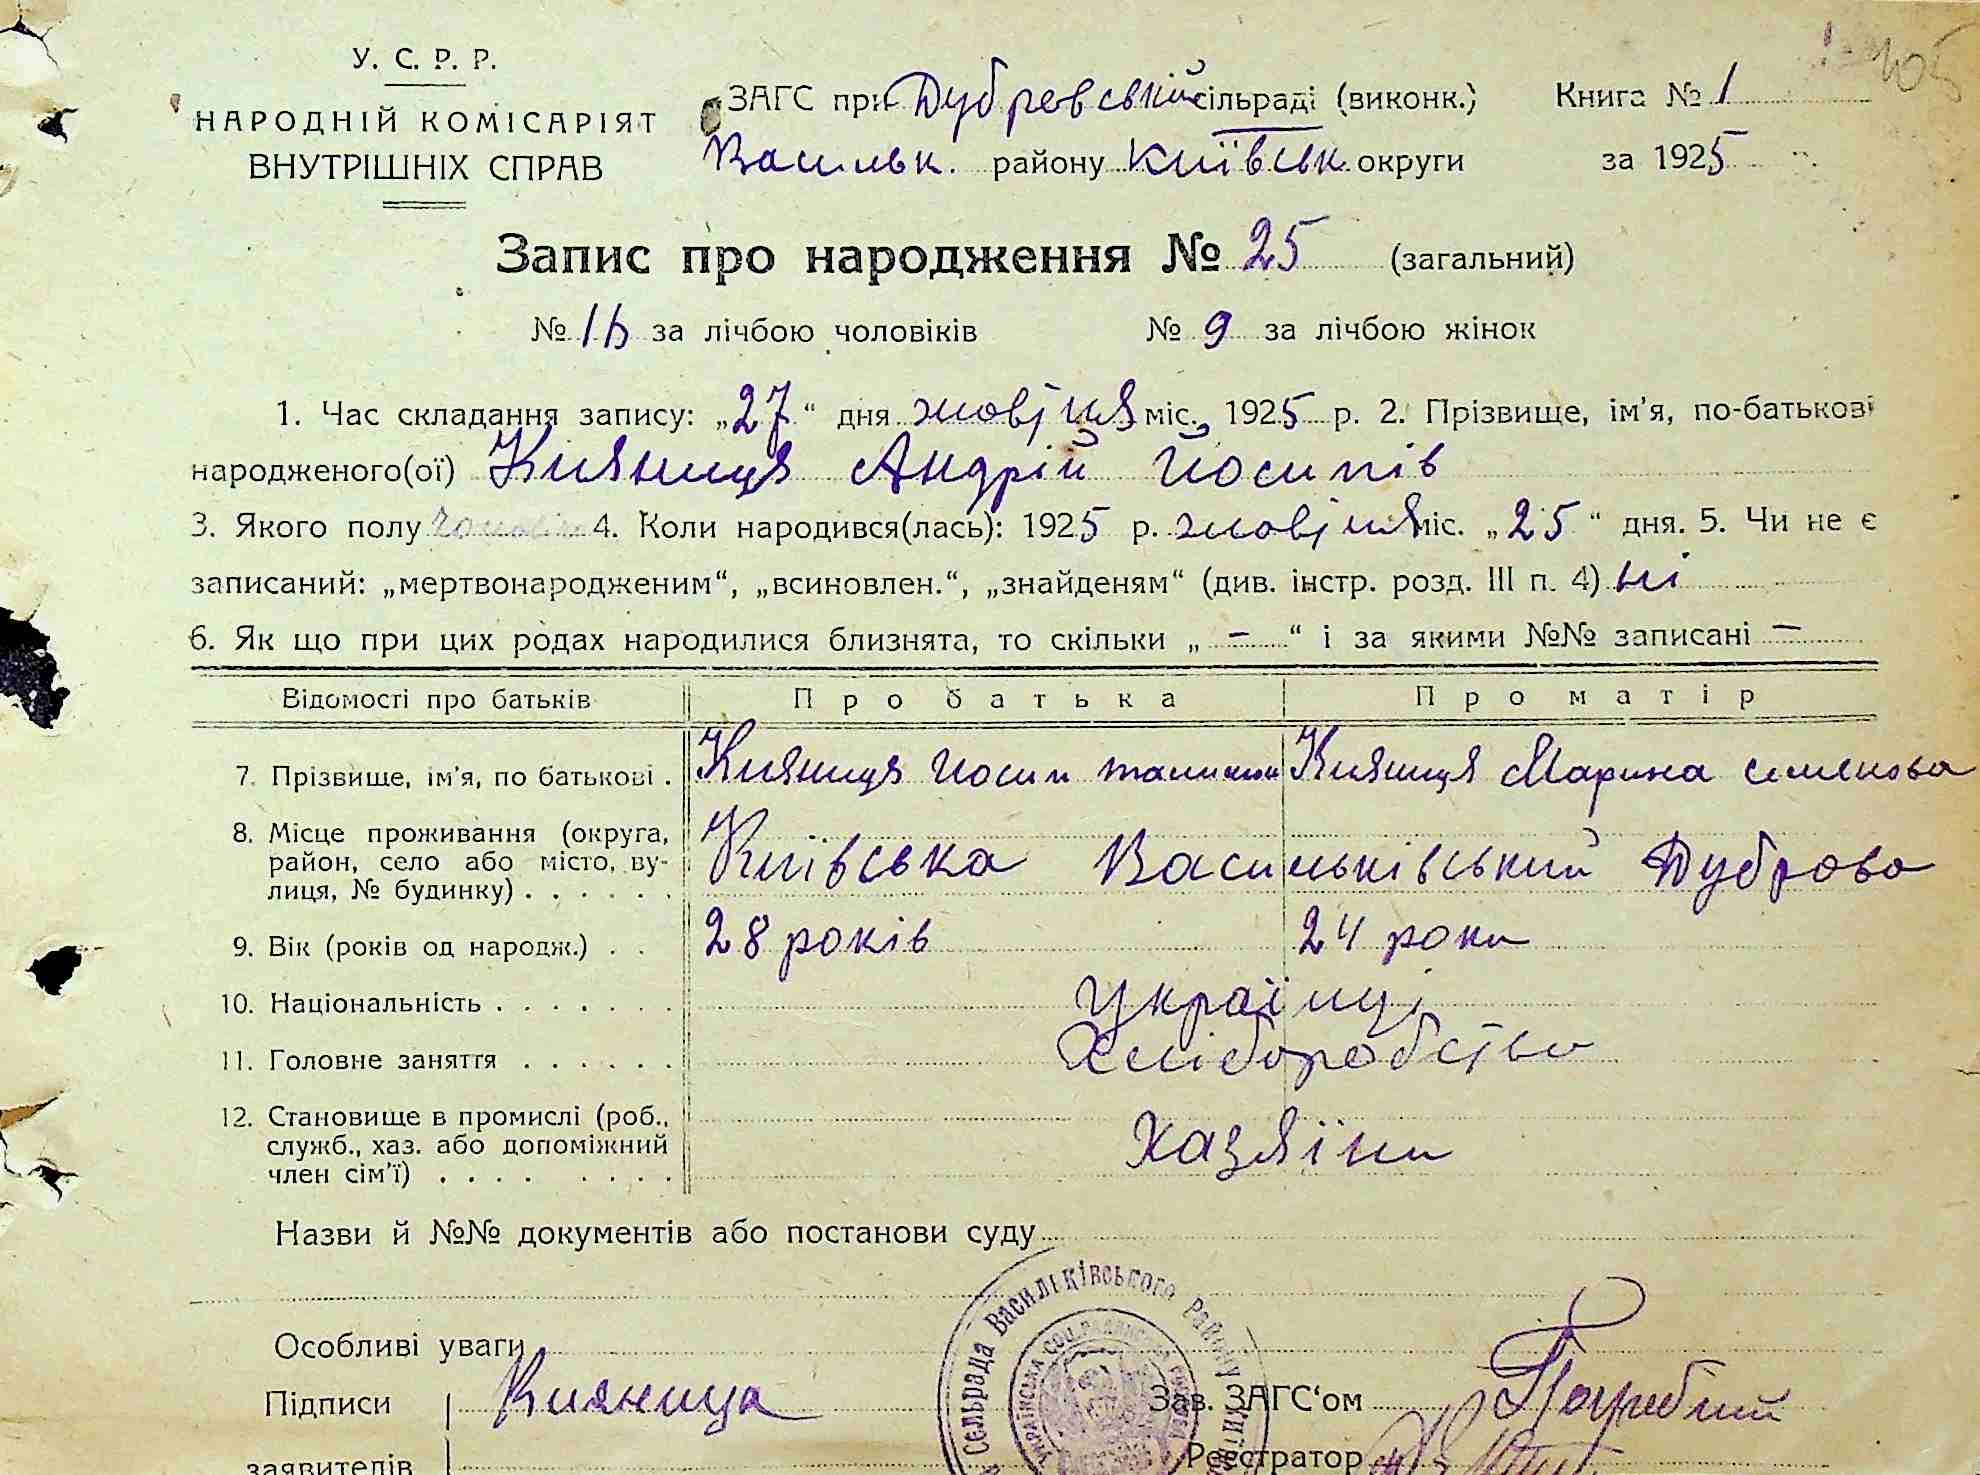 У. С. Р. Р.
НАРОДНІЙ КОМІСАРІЯТ
ВНУТРІШНІХ СПРАВ
ЗАГС при Дубровській сільраді (виконк.)
Васильк. району Київськ округи
Книга № 1
за 1925
105
Запис про народження № 25 (загальний)
№ 16 за лічбою чоловіків № 9 за лічбою жінок
1. Час складання запису: „27“ дня жовтня міс. 1925 р. 2. Прізвище, ім'я, по-батькові
народженого(ої) Кияниця Андрій Йосипів
3. Якого полу чоловіч 4. Коли народився(лась): 1925 р. жовтня міс. „25“ дня. 5. Чи не є
записаний: „мертвонародженим“, „всиновлен.“, „знайденям“ (див. інстр. розд. III п. 4) ні
6. Як що при цих родах народилися близнята, то скільки „ – “ і за якими №№ записані –
Відомості про батьків Про батька Про матір
7. Прізвище, ім'я, по батькові . Кияниця Йосип Кияниця Марина Семенова
8. Місце проживання (округа,
район, село або місто, ву-
лиця, № будинку) . . . . . . Київська Васильківський Дуброво
9. Вік (років од народж.) . . 28 років 24 роки
10. Національність . . . . . . . Українці
11. Головне заняття . . . . . . Хліборобство
12. Становище в промислі (роб.,
служб., хаз. або допоміжний
член сім'ї) . . . . . . . . Хазяїни
Назви й №№ документів або постанови суду
Особливі уваги
Підписи Кияница
заявителів
Зав. ЗАГС‘ом Погребний
Реєстратор
Сельрада Васильківського Району
УКРАЇНСЬКА СОЦ.РАДЯНСЬКА